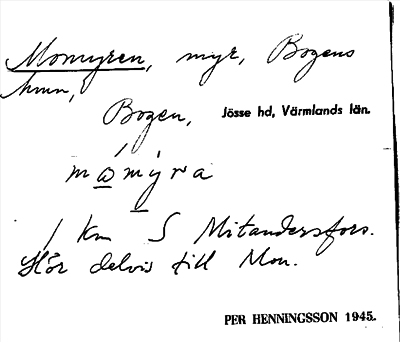 Momyren, myr, Bogens
hmn,
Bogen, Jösse hd, Värmlands län.
mωmýra
1 km S Mitandersfors.
Hör delvis till Mon.
PER HENNINGSSON 1945.